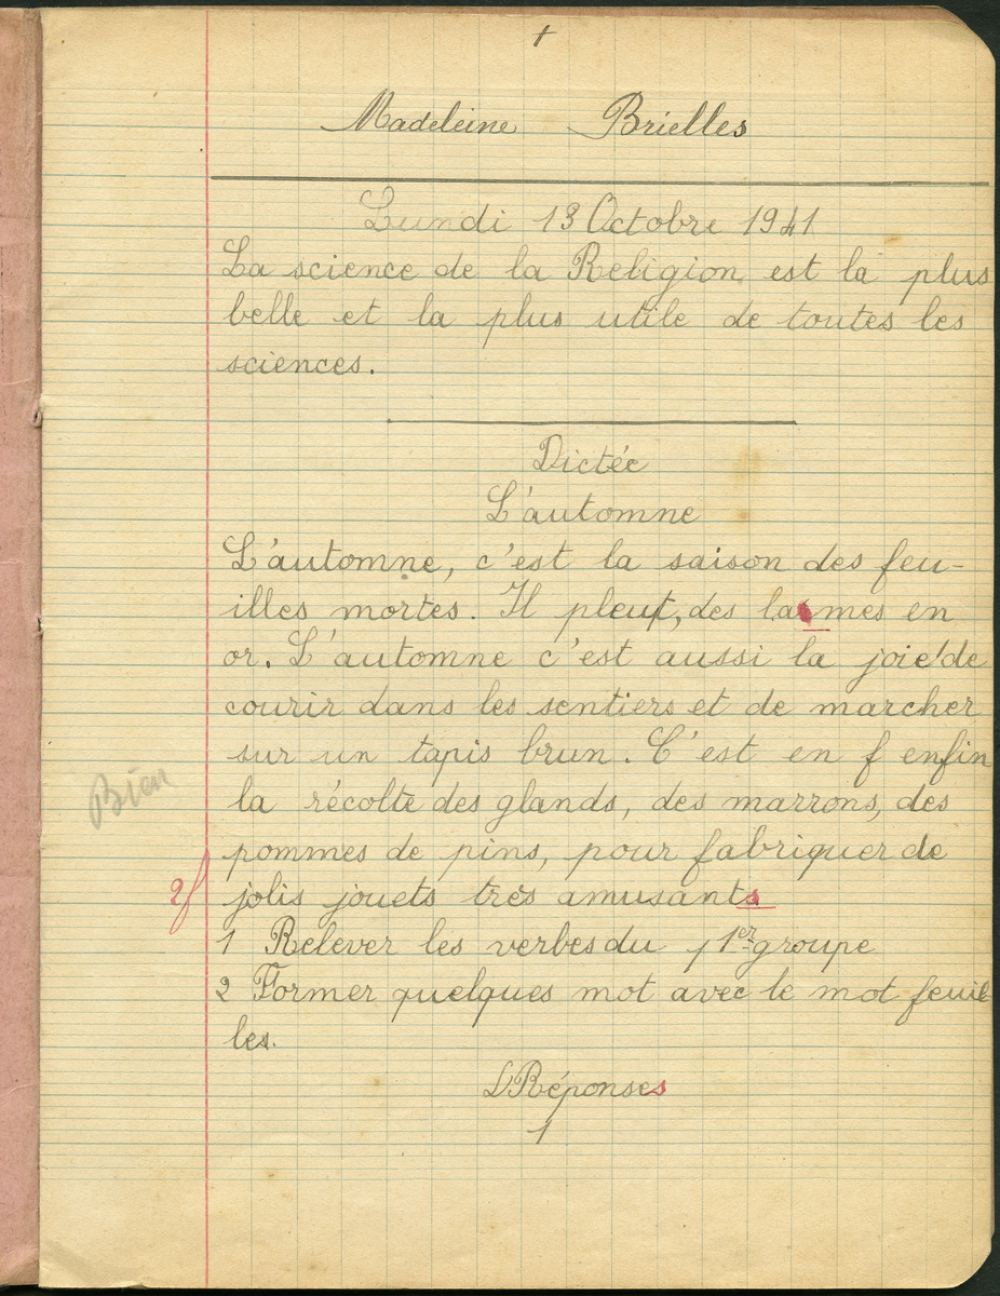 †
Madeleine Brielles
Lundi 13 Octobre 1941
La science de la Religion est la plus
belle et la plus utile de toutes les
sciences.
Dictée
L'automne
L'automne, c'est la saison des feu-
illes mortes. Il pleut, des larmes en
or. L'automne c'est aussi la joie de
courir dans les sentiers et de marcher
sur un tapis brun. C'est en f enfin
la récolte des glands, des marrons, des
Bien
pommes de pins, pour fabriquer de
2f jolis jouets très amusants
1 Relever les verbes du 1er groupe
2 Former quelques mot avec le mot feuil
les.
Réponses
1